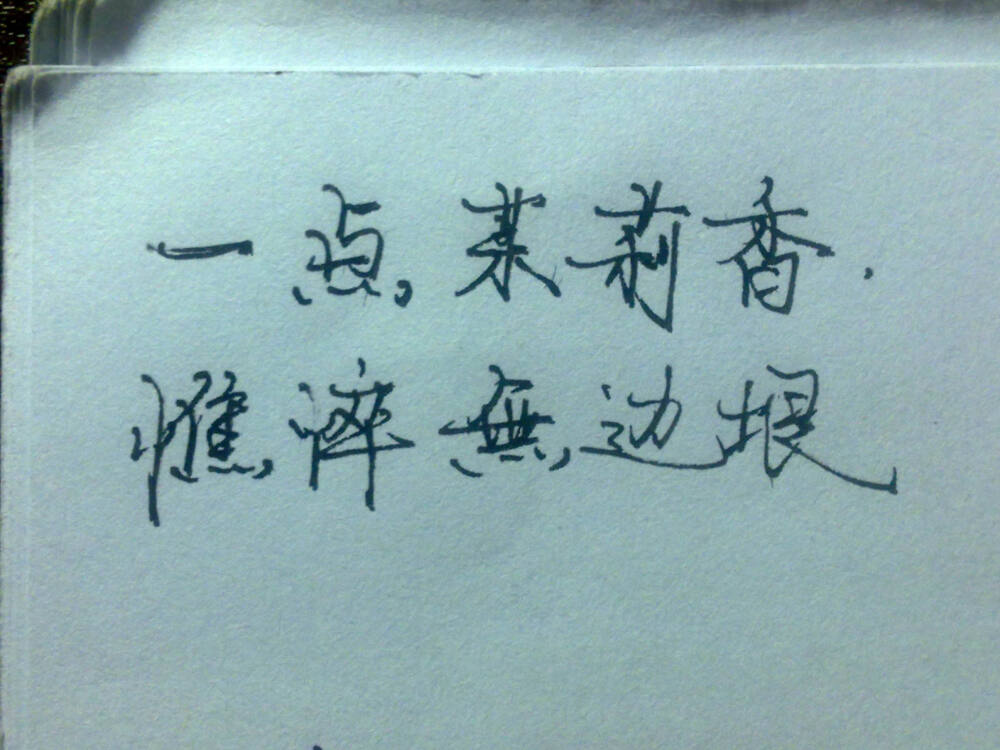 一点茉莉香.
憔悴無边垠